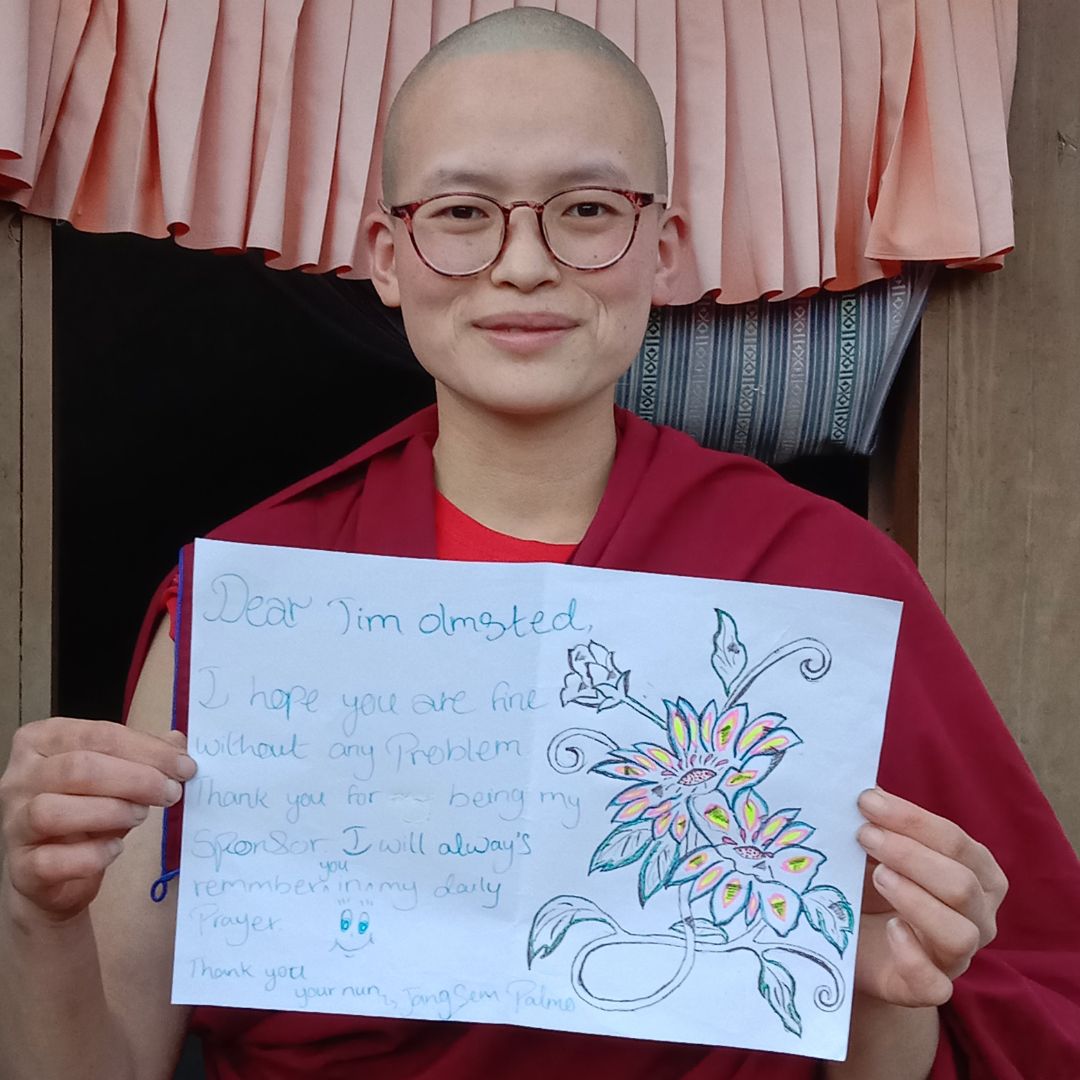 Dear Jim olmsted,
I hope you are fine
without any Problem
Thank you for being my
Sponsor. I will alway's
you
remmber in my daily
Prayer.
Thank you
your nun, Jangsem Palmo